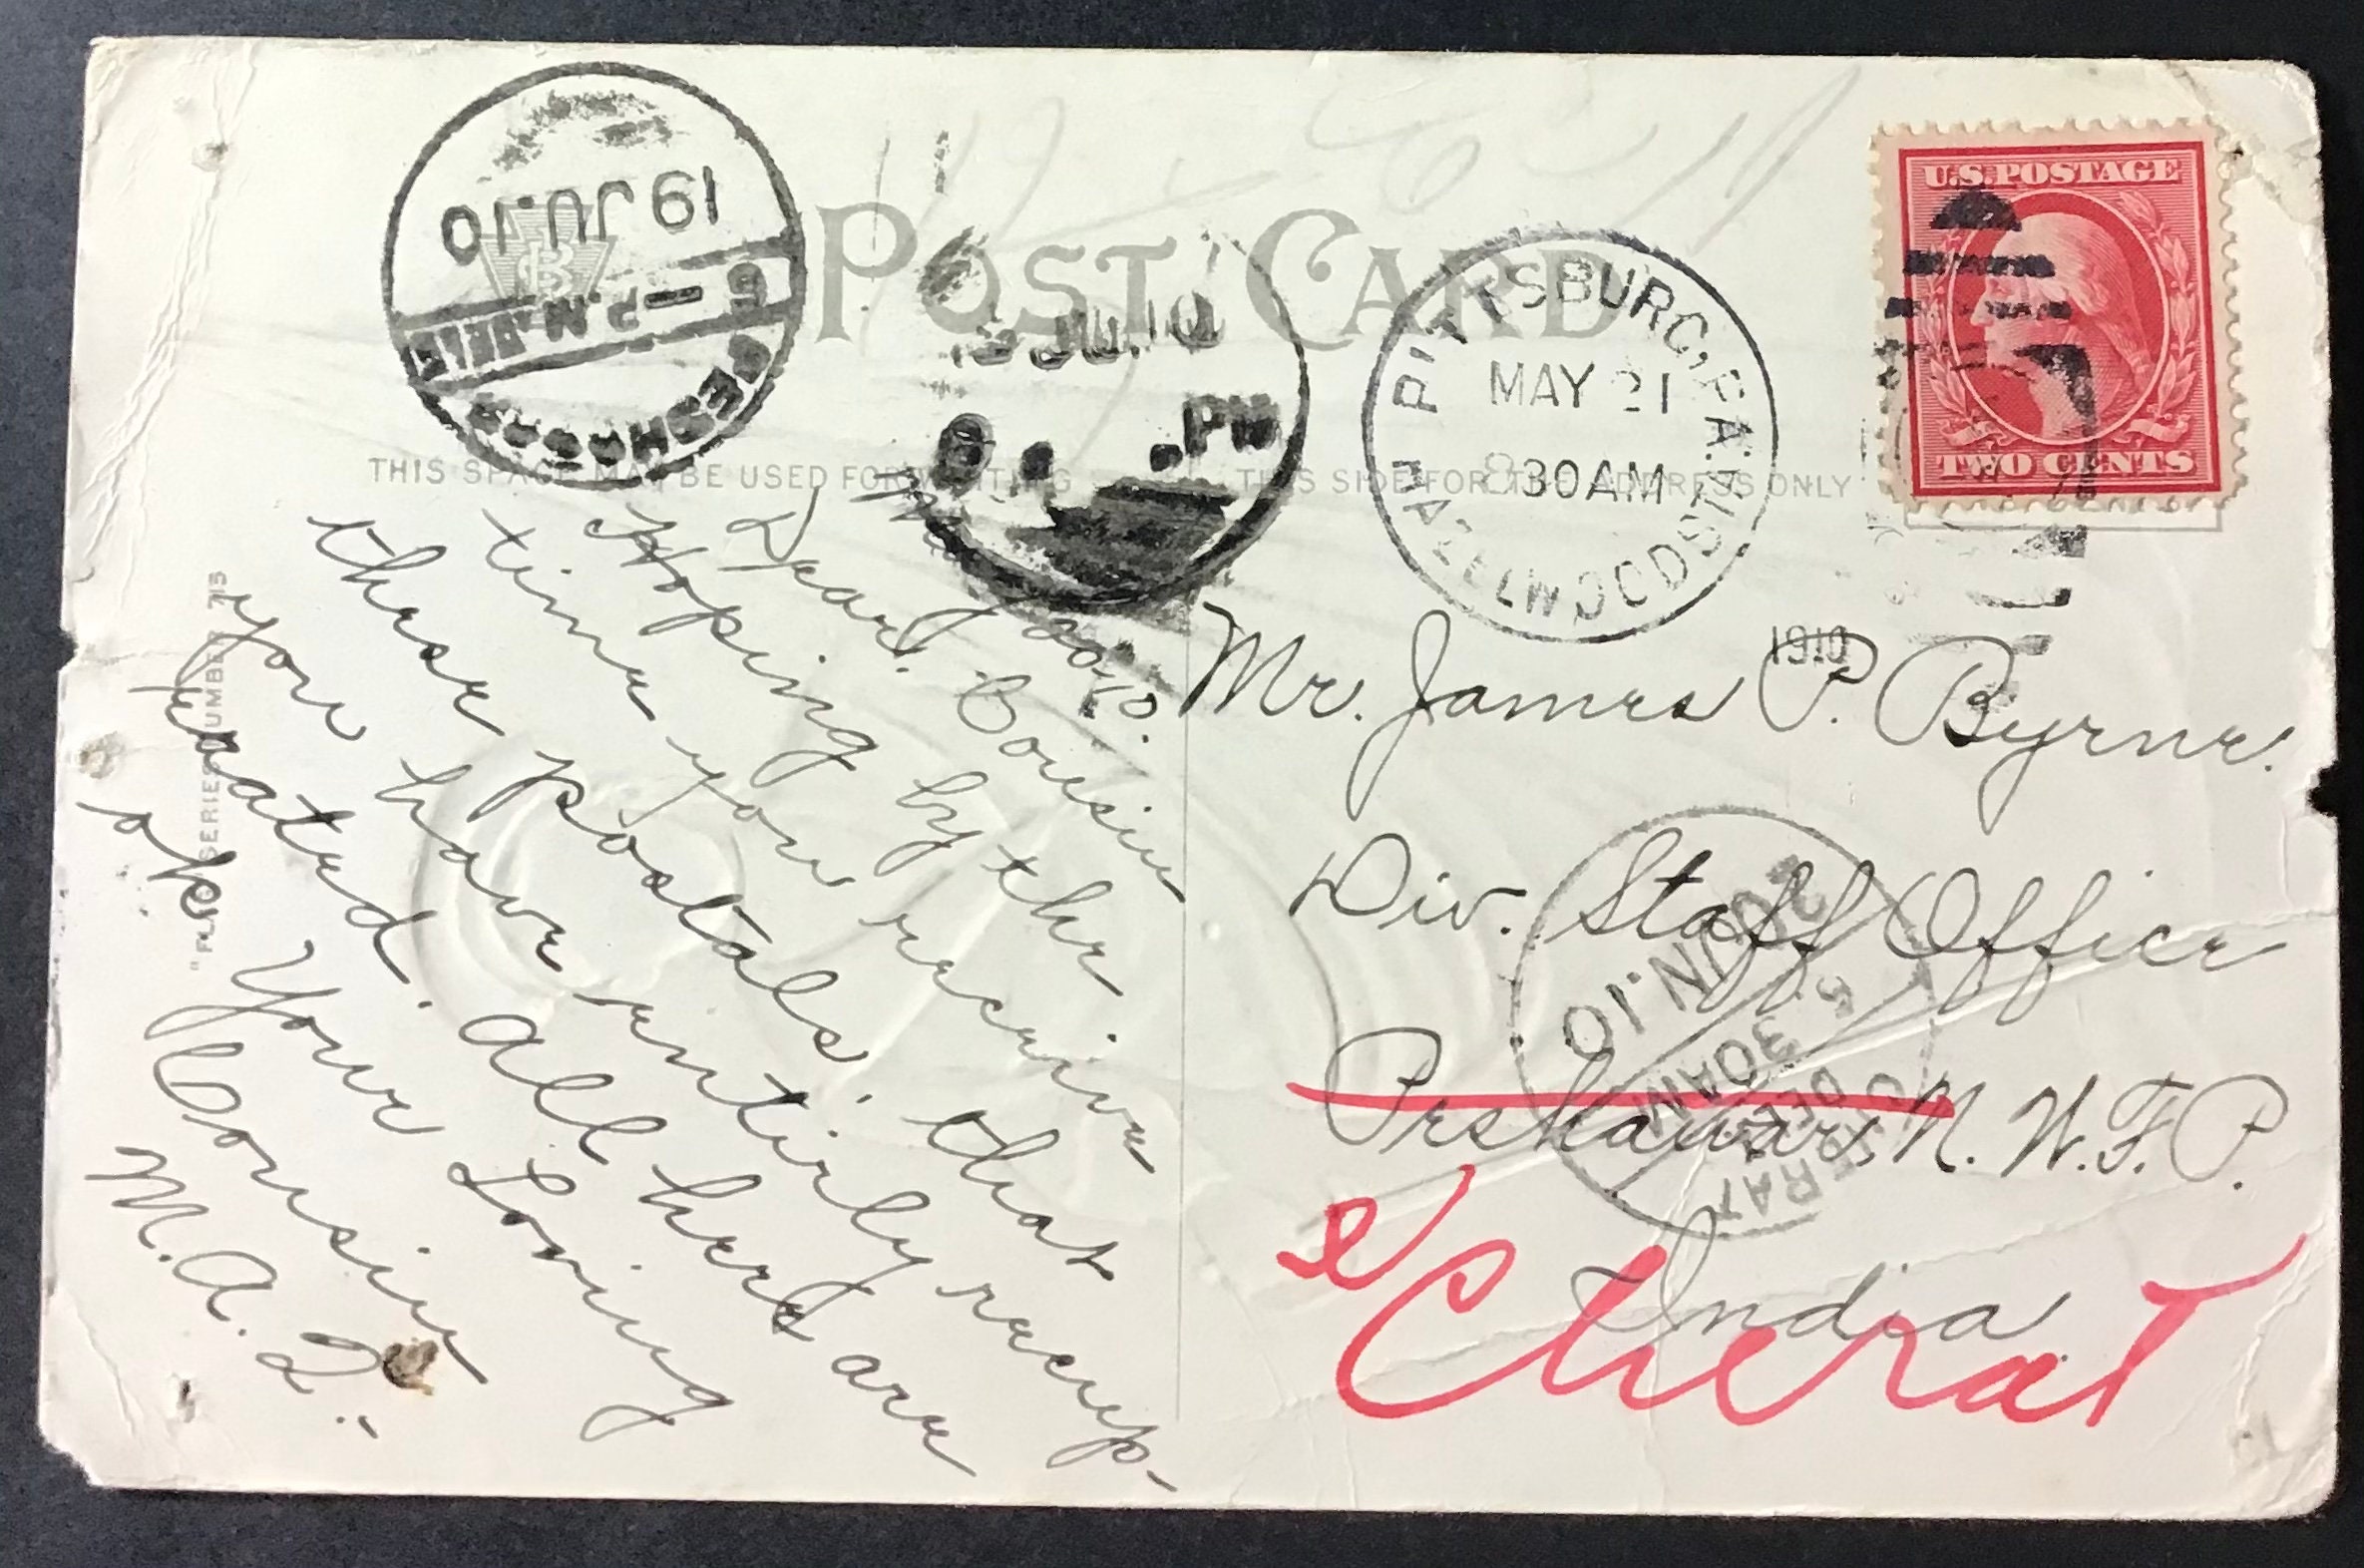 POST CARD
THIS SPACE MAY BE USED FOR WRITING
THIS SIDE FOR THE ADDRESS ONLY
U.S. POSTAGE
TWO CENTS
PITTSBURG, PA.
MAY 21
830AM
1910
HAZELWOOD STA.
19 JU. 10
6-P.M. DELY
PESHAWAR
JU. 10
.PM
20 JN. 10
5.30AM
CHERAT
SERIES NUMBER 715
May 20, 10.
Dear Cousin
Hoping by the
time you receive
these postals, that
you have entirly recup-
erated. All here are
ok. Your Loving
Cousin
M. A. Q.
Mr. James P. Byrne.
Div. Staff Office
Peshawar, N. W. F. P.
India
Cherat